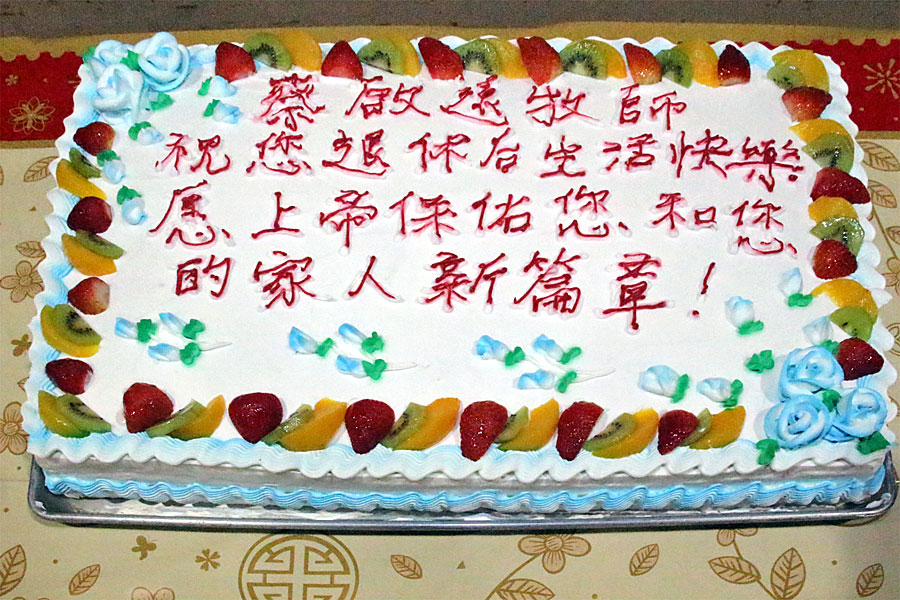 蔡啟遠牧師
祝您退休后生活快樂
愿上帝保佑您和您
的家人新篇章！